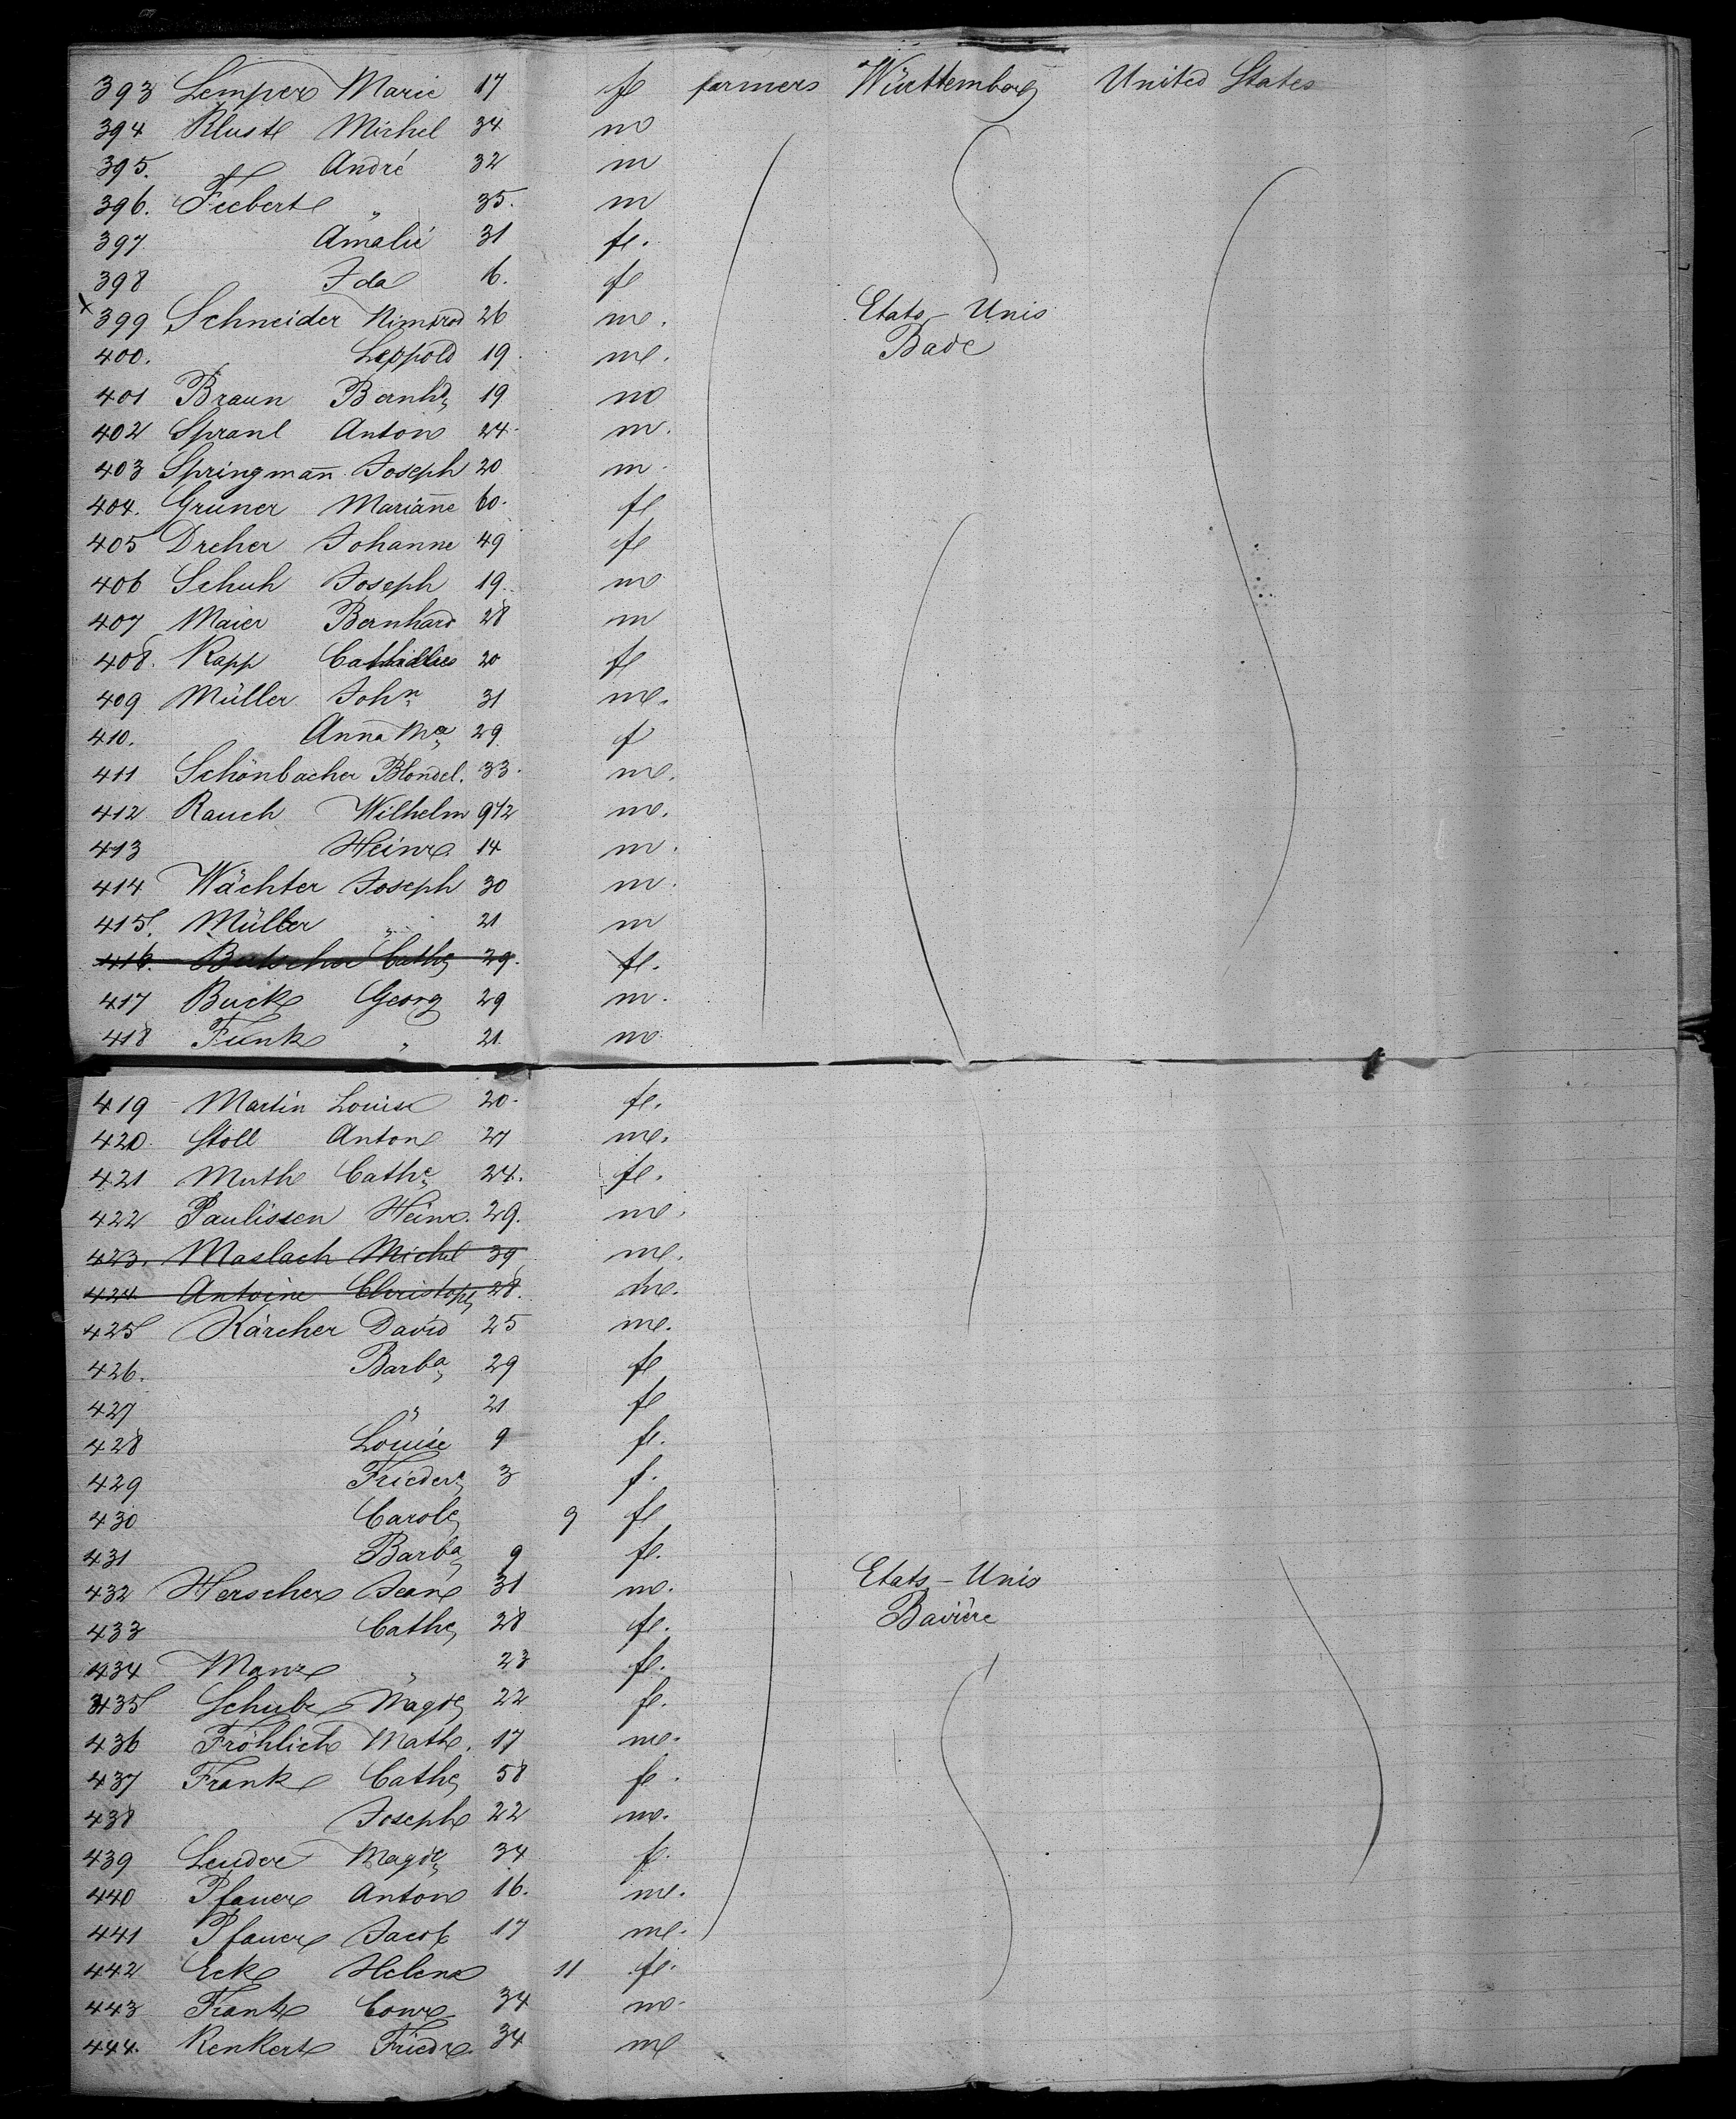 393 Lemperx Marie 17 fe farmers Württemberg United States
394 Klust Michel 34 m
395. André 32 m
396. Fiebert " 35. m
397 Amalie 31 fe.
398 Ida 16. fe
x 399 Schneider Nimrod 26 m. Etats-Unis
400. Leopold 19. m. Bade
401 Braun Bernhd 19 m
402 Spranl Anton 24. m.
403 Springmañ Joseph 20 m.
404. Gruner Mariañe 60. fe
405 Dreher Johanne 49 fe
406 Schuh Joseph 19. m
407 Maier Bernhard 28 m
408. Rapp 20 fe
409 Müller John 31 m.
410. Anna Ma 29 f
411 Schönbacher Blondel. 33. m.
412 Rauch Wilhelm 9 1/2 m.
413 Heinr 14 m.
414 Wächter Joseph 30 m.
415. Müller " 21 m
416. Cathe 29. fe.
417 Buck Georg 29 m.
418 Funk " 21. m.
419 Martin Louise 20. fe.
420. Stoll Anton 27 m.
421 Muth Cathe 24. fe.
422 Paulissen Heinr. 29. m.
423. Maslach Michel 39 m.
424 Antoine Christoph 28. m.
425 Kärcher David 25 m.
426. Barba 29 fe
427 " 21 fe
428 Louise 9 fe.
429 Friedere 3 f.
430 Carole 9 fe
431 Barba 9 fe.
432 Herscher Jean 31 m. Etats-Unis
433 Cathe 28 fe. Bavière
434 Manz " 23 fe.
435 Schub Magde 22 fe.
436 Fröhlich Math. 17 m.
437 Frank Cathe 58 fe.
438 Joseph 22 m.
439 Leuder Magde 34 f.
440 Pfauer Anton 16. m.
441 Pfauer Jacob 17 m.
442 Eck Helena 11 fe.
443 Frank Conr 34 m.
444. Renkert Friedr. 34 m